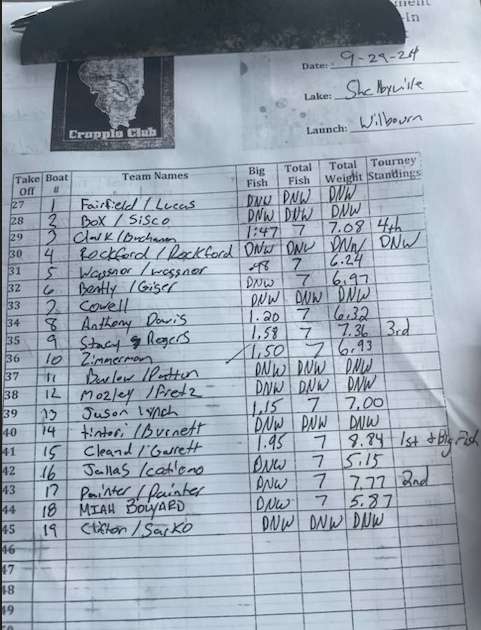 -In
Date: 9-29-24
Lake: Shelbyville
Launch: Wilbourn
Crappie Club
Take Off Boat # Team Names Big Fish Total Fish Total Weight Tourney Standings
27 1 Fairfield / Lucas DNW DNW DNW
28 2 Box / Sisco DNW DNW DNW
29 3 Clark / Buchanan 1:47 7 7.08 4th
30 4 Rockford / Rockford DNW DNW DNW DNW
31 5 .98 7 6.24
32 6 Bently / Giser DNW 7 6.97
33 7 Cowell DNW DNW DNW
34 8 Anthony Davis 1.20 7 6.32
35 9 Stacy Rogers 1.58 7 7.36 3rd
36 10 Zimmerman 1.50 7 6.93
37 11 Barlow / Patton DNW DNW DNW
38 12 Mozley / Fretz DNW DNW DNW
39 13 Jason Lynch 1.15 7 7.00
40 14 tintori / Burnett DNW DNW DNW
41 15 Cleand / Garrett 1.95 7 8.84 1st + Big Fish
42 16 Jallas / DNW 7 5.15
43 17 Painter / Painter DNW 7 7.77 2nd
44 18 MIAH BOWARD DNW 7 5.87
45 19 Clifton / Sarko DNW DNW DNW
46
47
48
49